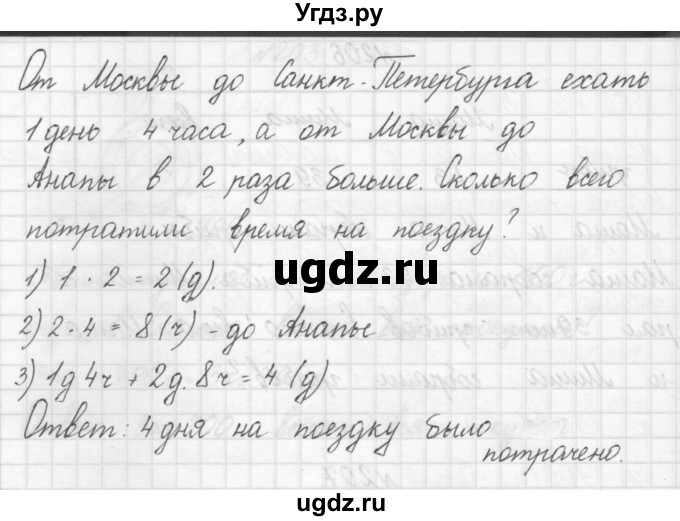 Угдз.ру
От Москвы до Санкт-Петербурга ехать
1 день 4 часа, а от Москвы до
Анапы в 2 раза больше. Сколько всего
потратили время на поездку?
1) 1 · 2 = 2 (д).
2) 2 · 4 = 8 (ч) - до Анапы
3) 1д 4ч + 2д. 8ч = 4 (д)
Ответ: 4 дня на поездку было
потрачено.
ugdz.ru
ugdz.ru